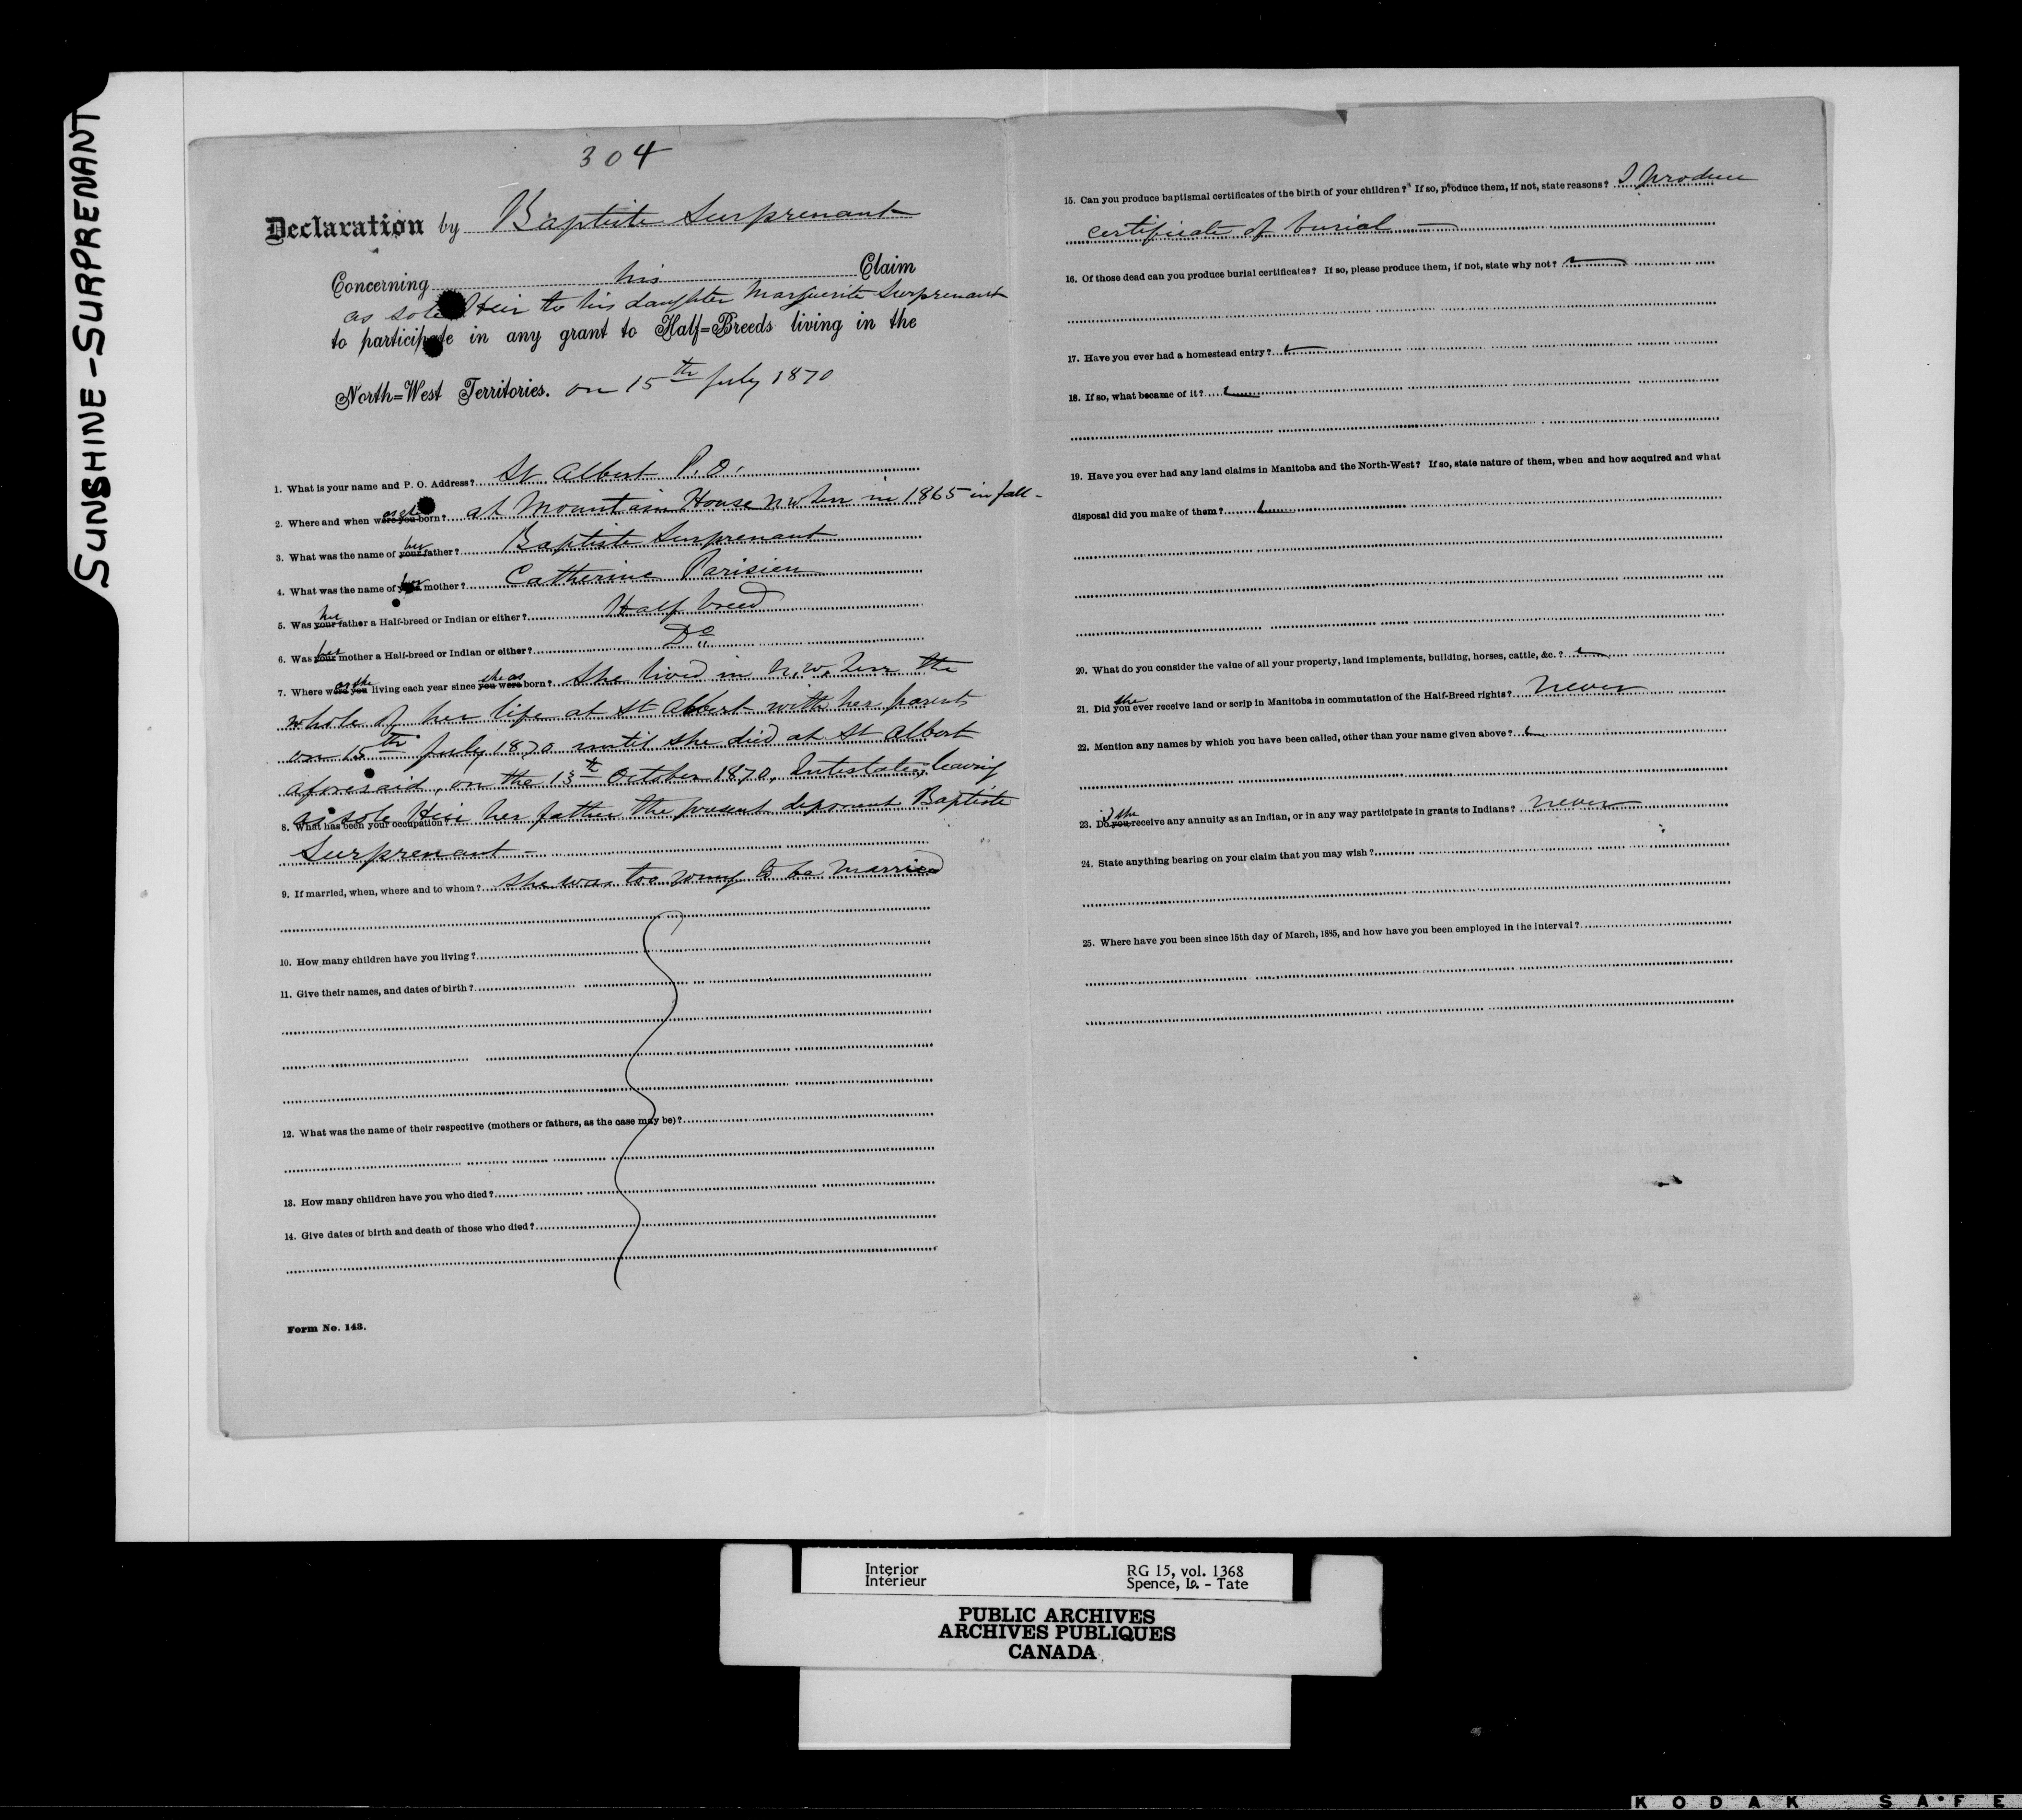 SUNSHINE - SURPRENANT
304
Declaration by Baptiste Surprenant
Concerning his Claim
as sole Heir to his daughter Marguerite Surprenant
to participate in any grant to Half=Breeds living in the
North=West Territories. on 15th July 1870
1. What is your name and P. O. Address? St Albert P.O.
2. Where and when were you born? at Mountain House N W Terr in 1865 in fall -
3. What was the name of your her father? Baptiste Surprenant
4. What was the name of her mother? Catherine Parisien
5. Was your her father a Half-breed or Indian or either? Half breed
6. Was your her mother a Half-breed or Indian or either? Do
7. Where were you as she living each year since you were she as born? She lived in N. W. Terr the
whole of her life at St Albert with her parents
on 15th July 1870 until she died at St Albert
aforesaid, on the 13th October 1870, Intestate, leaving
as sole Heir her father the present deponent Baptiste
8. What has been your occupation?
Surprenant -
9. If married, when, where and to whom? She was too young to be married
10. How many children have you living?
11. Give their names, and dates of birth?
12. What was the name of their respective (mothers or fathers, as the case may be)?
13. How many children have you who died?
14. Give dates of birth and death of those who died?
Form No. 143.
15. Can you produce baptismal certificates of the birth of your children? If so, produce them, if not, state reasons? I produce
certificate of burial -
16. Of those dead can you produce burial certificates? If so, please produce them, if not, state why not?
17. Have you ever had a homestead entry?
18. If so, what became of it?
19. Have you ever had any land claims in Manitoba and the North-West? If so, state nature of them, when and how acquired and what
disposal did you make of them?
20. What do you consider the value of all your property, land implements, building, horses, cattle, &c.?
21. Did you she ever receive land or scrip in Manitoba in commutation of the Half-Breed rights? Never
22. Mention any names by which you have been called, other than your name given above?
23. Do you she receive any annuity as an Indian, or in any way participate in grants to Indians? Never
24. State anything bearing on your claim that you may wish?
25. Where have you been since 15th day of March, 1885, and how have you been employed in the interval?
Interior RG 15, vol. 1368
Intérieur Spence, Is. - Tate
PUBLIC ARCHIVES
ARCHIVES PUBLIQUES
CANADA
KODAK SAFE